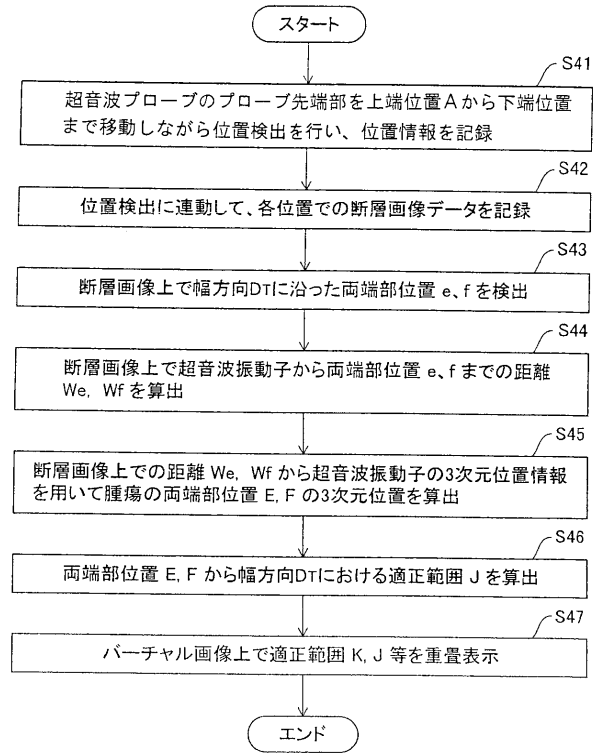 スタート
S41
超音波プローブのプローブ先端部を上端位置Aから下端位置
まで移動しながら位置検出を行い、位置情報を記録
S42
位置検出に連動して、各位置での断層画像データを記録
S43
断層画像上で幅方向DTに沿った両端部位置 e、f を検出
S44
断層画像上で超音波振動子から両端部位置 e、f までの距離
We, Wf を算出
S45
断層画像上での距離 We, Wf から超音波振動子の3次元位置情報
を用いて腫瘍の両端部位置 E, F の3次元位置を算出
S46
両端部位置 E, F から幅方向DTにおける適正範囲 J を算出
S47
バーチャル画像上で適正範囲 K, J 等を重畳表示
エンド